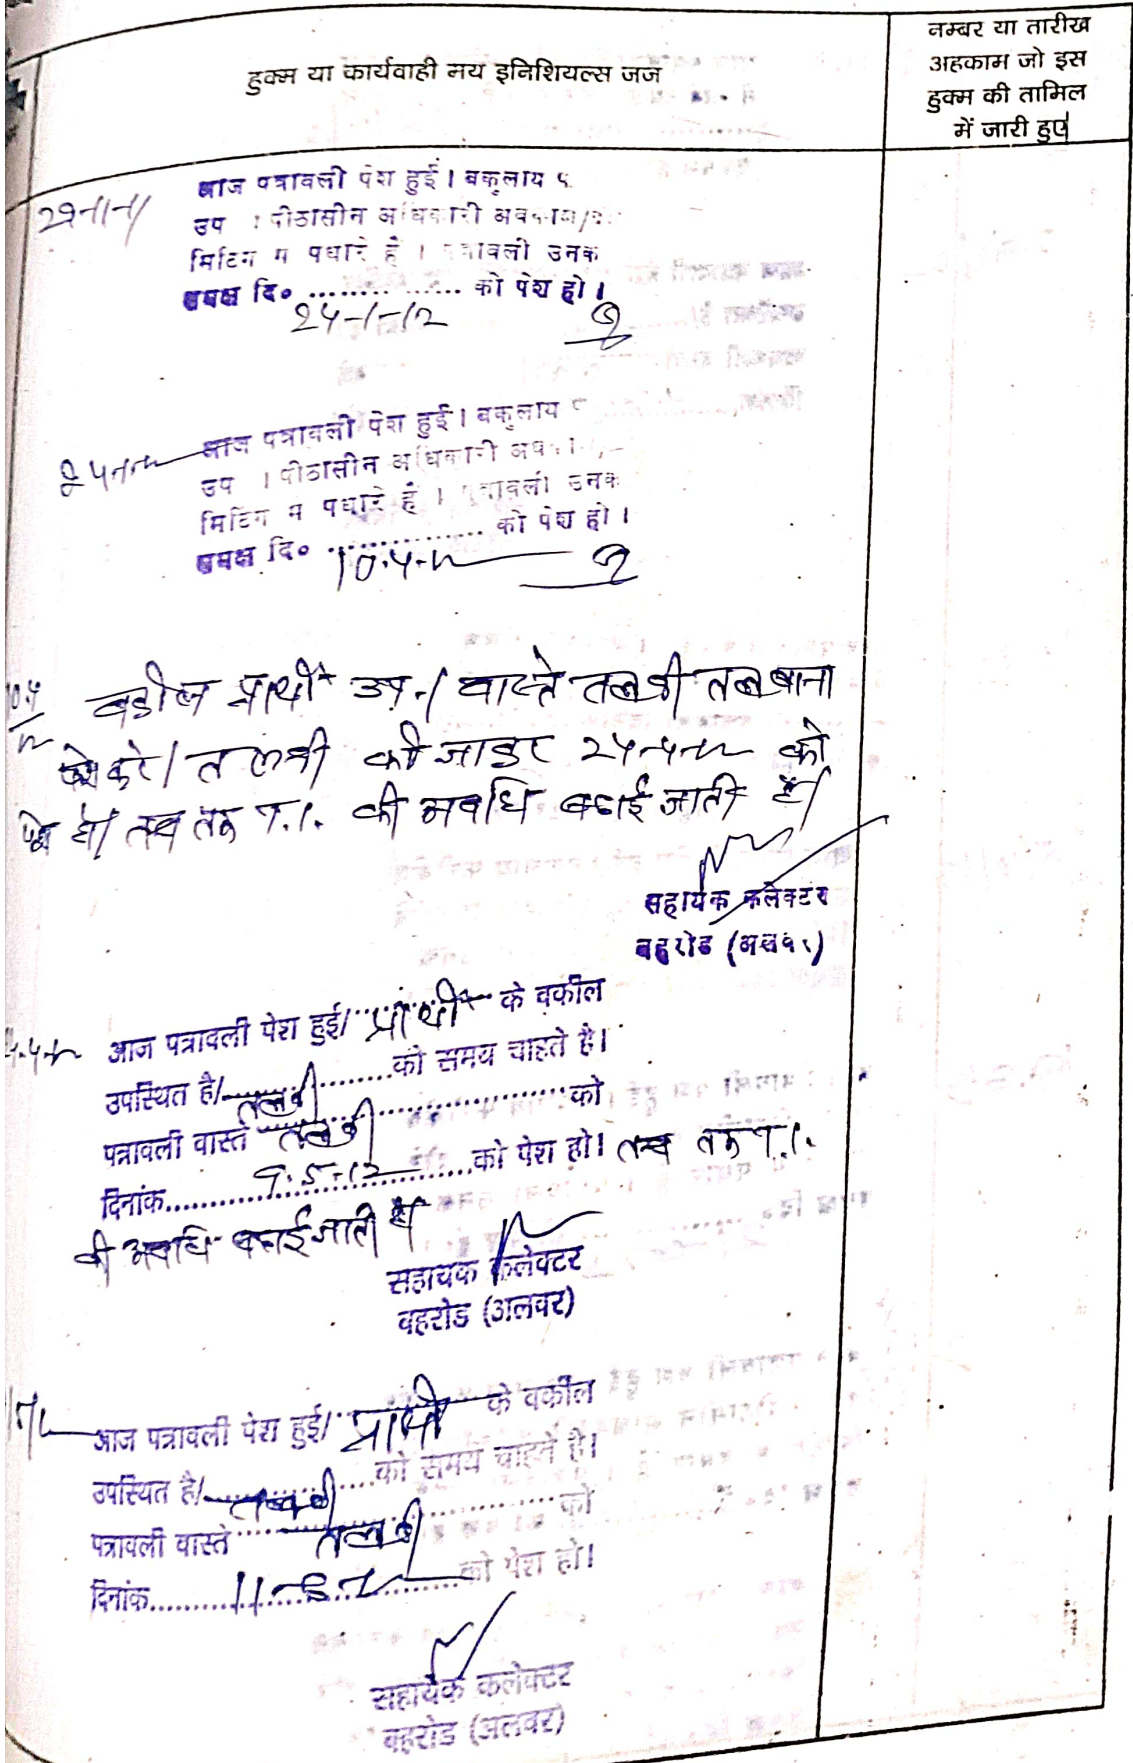 हुक्म या कार्यवाही मय इनिशियल्स जज
नम्बर या तारीख
अहकाम जो इस
हुक्म की तामिल
में जारी हुए
29-11-11
आज पत्रावली पेश हुई । वकुलाय
उप । पीठासीन अधिकारी अवकाश/
मिटिग म पधारे हैं । पत्रावली उनक
समक्ष दि० .................. को पेश हो ।
24-1-12
आज पत्रावली पेश हुई । वकुलाय
उप । पीठासीन अधिकारी
मिटिग म पधारे हैं । पत्रावली उनक
समक्ष दि० .................. को पेश हो ।
10.4.12
वकील प्रार्थी उप./ वास्ते तलबी तलबाना
पेश करे/ तलबी की जाकर 24-4-12 को
पेश हो/ तब तक T.I. की अवधि बढाई जाती है/
सहायक कलेक्टर
बहरोड (अलवर)
आज पत्रावली पेश हुई/ प्रार्थी के वकील
उपस्थित है/ तलबी ............को समय चाहते है।
पत्रावली वास्ते तलबी ............को
दिनांक............9.5.12............को पेश हो। तब तक T.I.
की अवधि बढाई जाती है
सहायक कलेक्टर
बहरोड (अलवर)
आज पत्रावली पेश हुई/ प्रार्थी के वकील
उपस्थित है/ तलबी ............को समय चाहते है।
पत्रावली वास्ते तलबी ............को
दिनांक........................को पेश हो।
सहायक कलेक्टर
बहरोड (अलवर)